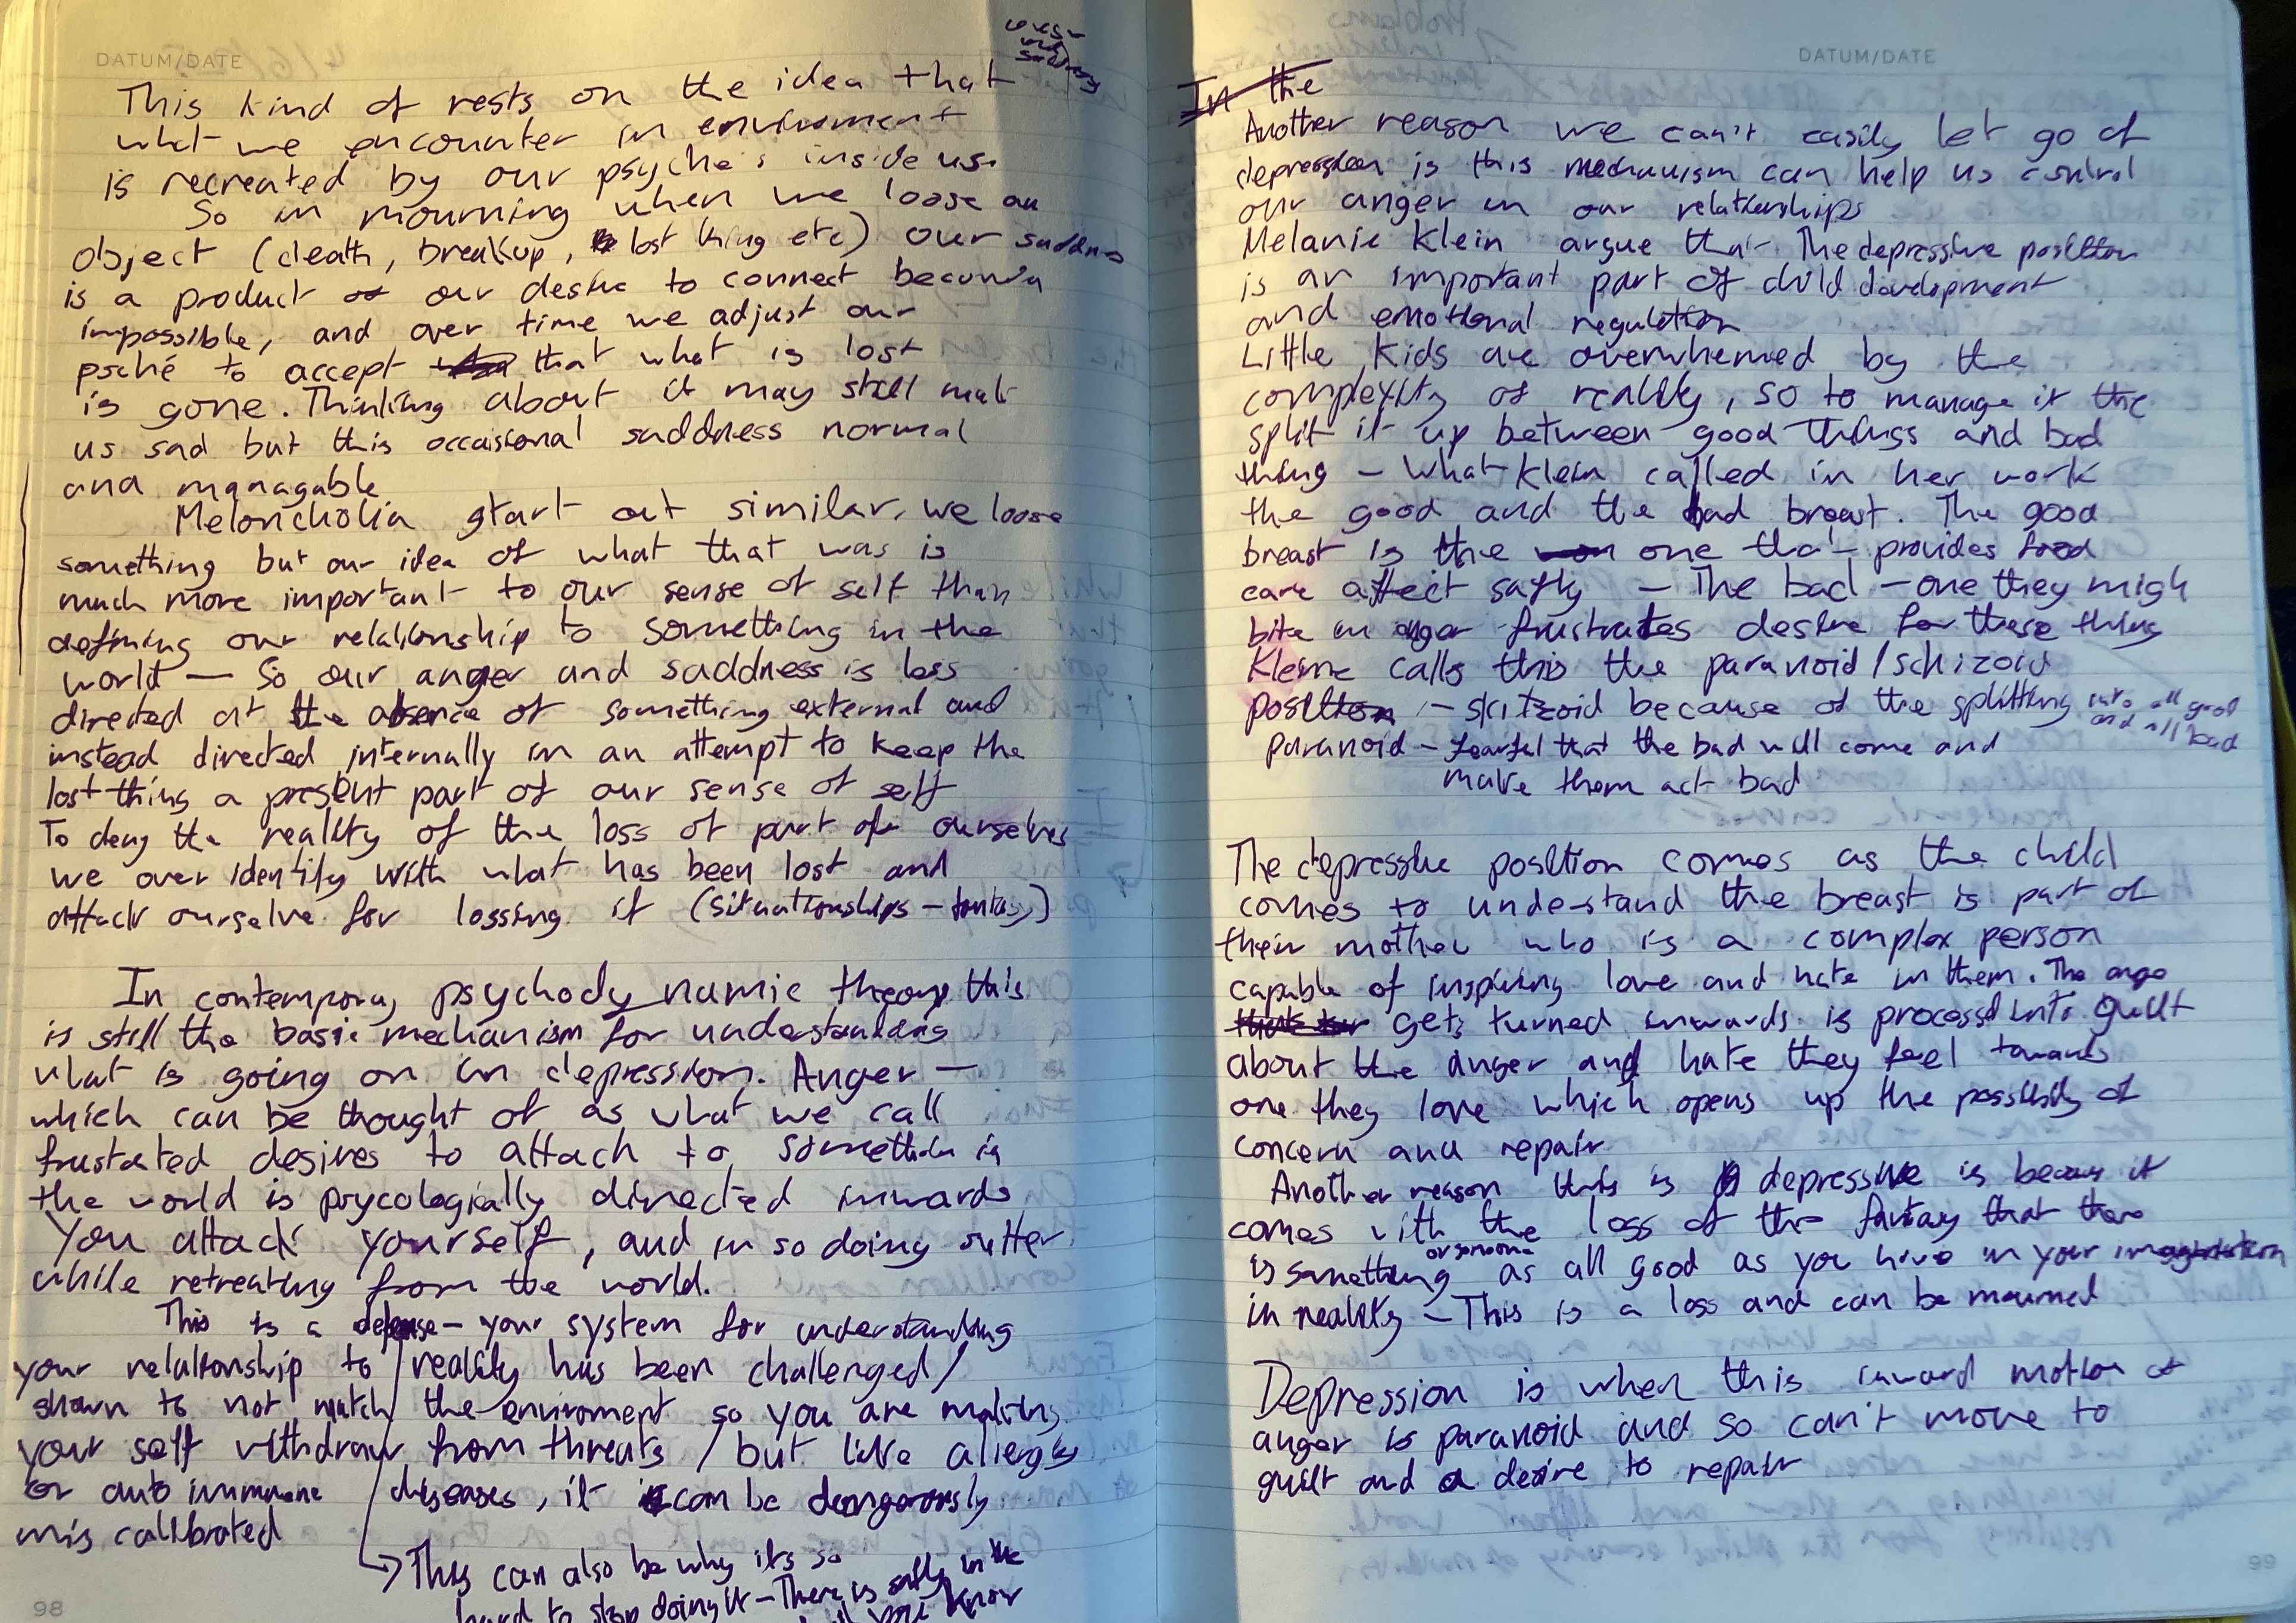 DATUM/DATE
This kind of rests on the idea that
what we encounter in enviroment
is recreated by our psyche's inside us.
So in mourning when we loose an
object (death, breakup, lost thing etc) our saddness
is a product of our desire to connect becomin
impossible, and over time we adjust our
psché to accept that what is lost
is gone. Thinking about it may still make
us sad but this occaisional saddness normal
and managable
Meloncholia start out similar, we loose
something but our idea of what that was is
much more important to our sense of self than
defining our relationship to something in the
world — So our anger and saddness is less
directed at the absence of something external and
instead directed internally in an attempt to keep the
lost thing a present part of our sense of self
To deny the reality of the loss of part of ourselves
we over identify with what has been lost and
attack ourselve for lossing it (situationships - fantasy)
In contemporary psychodynamic theory this
is still the basic mechanism for understanding
what is going on in depression. Anger —
which can be thought of as what we call
frustrated desires to attach to somethin in
the world is psycologially directed inwards
You attack yourself, and in so doing suffer
while retreating from the world.
This is a defense - your system for understanding
your relationship to reality has been challenged/
shown to not match the enviroment so you are making
your self withdraw from threats / but like allergys
or auto immune diseases, it can be dangerously
mis calibrated
→ This can also be why its so
hard to stop doing it - There is safty in the
you know
98
DATUM/DATE
In the
Another reason we can't easily let go of
depression is this mechanism can help us control
our anger in our relationships
Melanie Klein argue that The depressive position
is an important part of child development
and emotional regulation
Little kids are overwhemed by the
complexity of reality, so to manage it the
split it up between good things and bad
thing - What Klein called in her work
the good and the bad breast. The good
breast is the one that provides food
care affect safty - The bad - one they migh
bite in anger frustrates desire for these thing
Kleine calls this the paranoid/schizoid
position - skitzoid because of the splitting into all good
and all bad
paranoid - fearful that the bad will come and
make them act bad
The depressive position comes as the child
comes to understand the breast is part of
their mother who is a complex person
capable of inspiring love and hate in them. The ange
gets turned inwards is processd into guilt
about the anger and hate they feel towards
one they love which opens up the possibility of
concern and repair
Another reason this is depressive is becaus it
comes with the loss of the fantasy that there
is something or someone as all good as you have in your imagination
in reality - This is a loss and can be mourned
Depression is when this inward motion of
anger is paranoid and so can't move to
guilt and a desire to repair
99